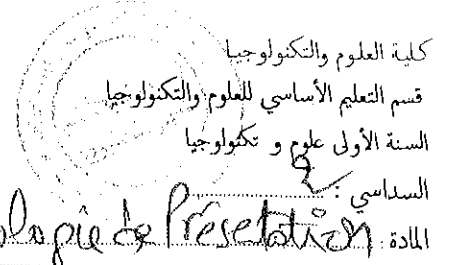 كلية العلوم والتكنولوجيا
قسم التعليم الأساسي للعلوم والتكنولوجيا
السنة الأولى علوم و تكنولوجيا
السداسي : 2
المادة : ologie de Présetation